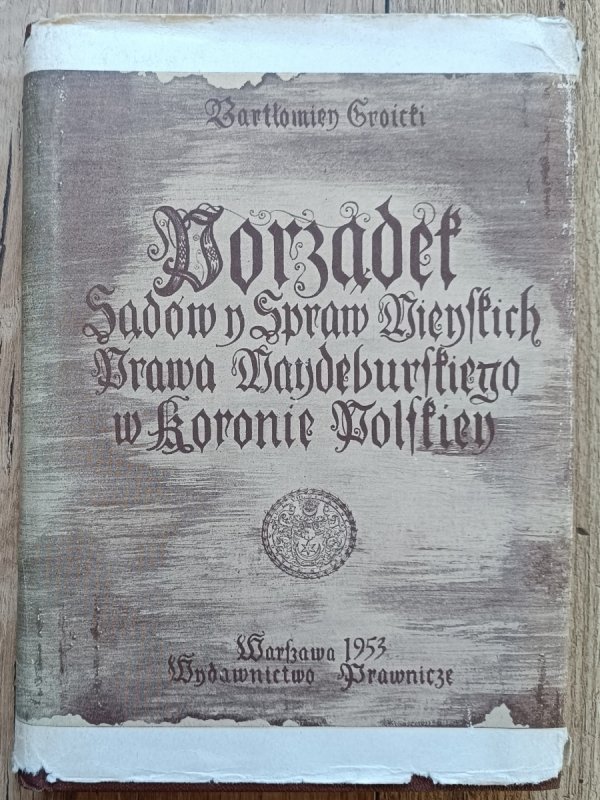 Bartłomiey Groicki
Porządek
Sądów y Spraw Mieyſkich
Prawa Maydeburſkiego
w Koronie Polſkiey
Warſzawa 1953
Wydawnictwo Prawnicze